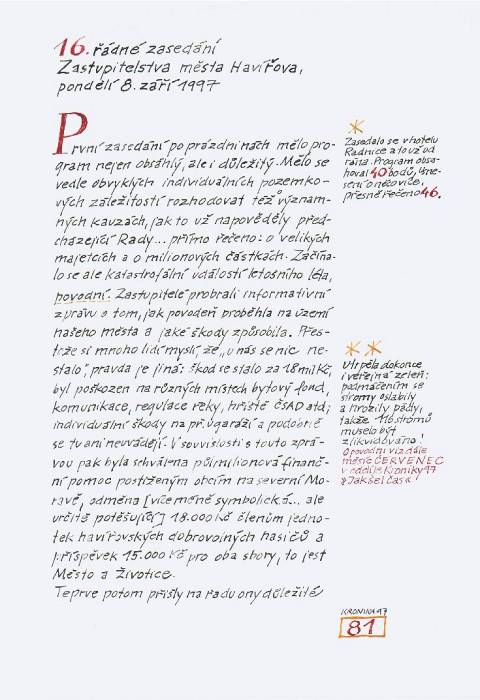 16. řádné zasedání
Zastupitelstva města Havířova,
pondělí 8. září 1997
První zasedání po prázdninách mělo pro-
gram nejen obsáhlý, ale i důležitý. Mělo se
vedle obvyklých individuálních pozemko-
vých záležitostí rozhodovat též význam-
ných kauzách, jak to už napověděly před-
cházející Rady... přímo řečeno: o velikých
majetcích a o milionových částkách. Začína-
lo se ale katastrofální událostí letošního léta,
povodní. Zastupitelé probrali informativní
zprávu o tom, jak povodeň proběhla na území
našeho města a jaké škody způsobila. Přes-
tože si mnoho lidí myslí, že „u nás se nic ne-
stalo", pravda je jiná: škod se stalo za 18 mil Kč,
byl poškozen na různých místech bytový fond,
komunikace, regulace řeky, hřiště ČSAD atd;
individuální škody na př. v garáži a podobně
se tu ani neuvádějí. V souvislosti s touto zprá-
vou pak byla schválena půlmilionová finanč-
ní pomoc postiženým obcím na severní Mo-
ravě, odměna [více méně symbolická... ale
určitě potěšující] 18.000 Kč členům jedno-
tek havířovských dobrovolných hasičů a
příspěvek 15.000 Kč pro oba sbory, to jest
Město a Životice.
Teprve potom přišly na řadu ony důležité
*
Zasedalo se v hotelu
Radnice a to už od
rána. Program obsa-
hoval 40 bodů, usne-
sení o něco více,
přesně řečeno 46.
* *
Utrpěla dokonce
i veřejná zeleň:
podmáčením se
stromy oslabily
a hrozily pády,
takže 116 stromů
muselo být
zlikvidováno!
O povodni viz dále
měsíc ČERVENEC
v oddíle Kroniky 97
"Jak šel čas"
KRONIKA 97
81